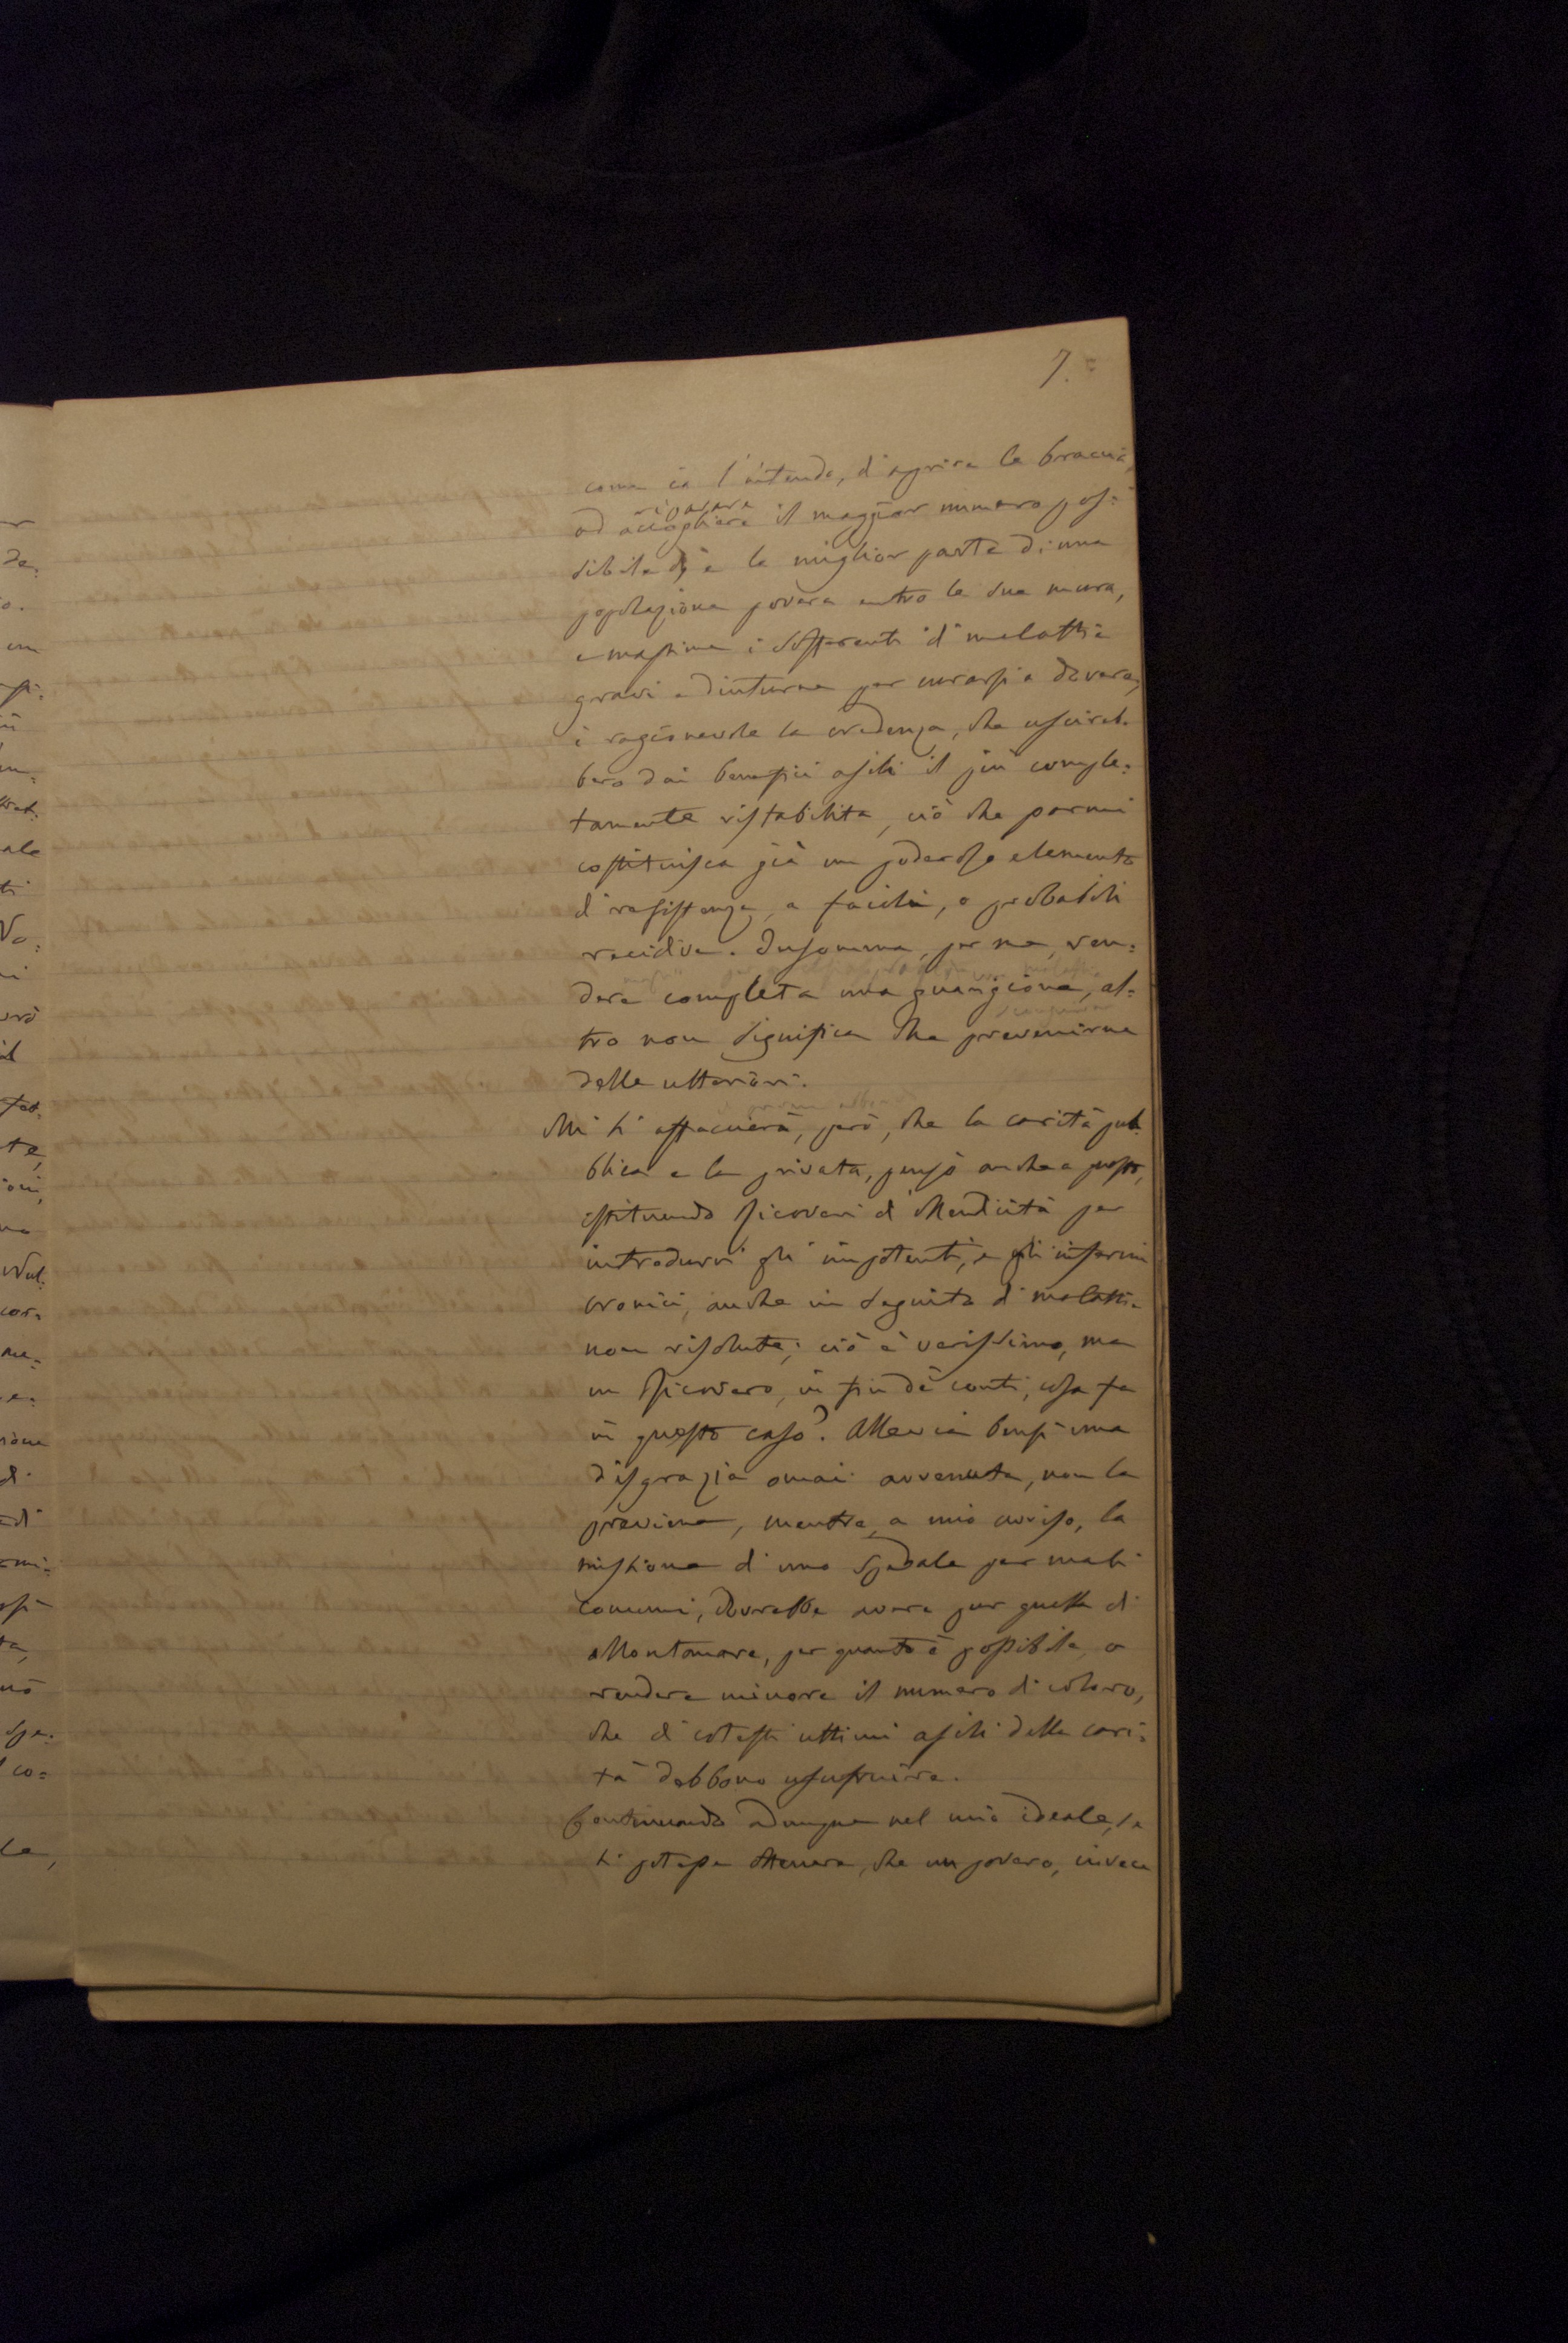 7.=
come io l'intendo, di aprire le braccia,
riparare
ad accogliere il maggior numero pos=
sibile, e la miglior parte di una
popolazione povera entro le sue mura,
e massime i sofferenti di malattie
gravi e diuturne per curarsi a dovere,
è ragionevole la credenza, che uscireb=
bero dai benefici asili il più comple=
tamente ristabilite, ciò che parmi
costituisca già un poderoso elemento
di resistenza, a facili, o probabili
recidive. Insomma, per me, ren=
dere completa una guarigione, al=
tro non significa che prevenirne
delle ulteriori.
Mi si affaccierà, però, che la carità pub=
blica e la privata, pensò anche a questo,
istituendo Ricoveri di Mendicità per
introdurvi gli impotenti, e gli infermi
cronici, anche in seguito di malattie
non risolute; ciò è verissimo, ma
un Ricovero, in fin de' conti, cosa fa
in questo caso? Allevia bensì una
disgrazia omai avvenuta, non la
previene, mentre, a mio avviso, la
missione di uno Spedale per mali
comuni, dovrebbe avere pur quella di
allontanare, per quanto è possibile, o
rendere minore il numero di coloro,
che di cotesti ultimi asili della cari=
tà debbono usufruire.
Continuando adunque nel mio ideale, se
si potesse ottenere, che un povero, invece